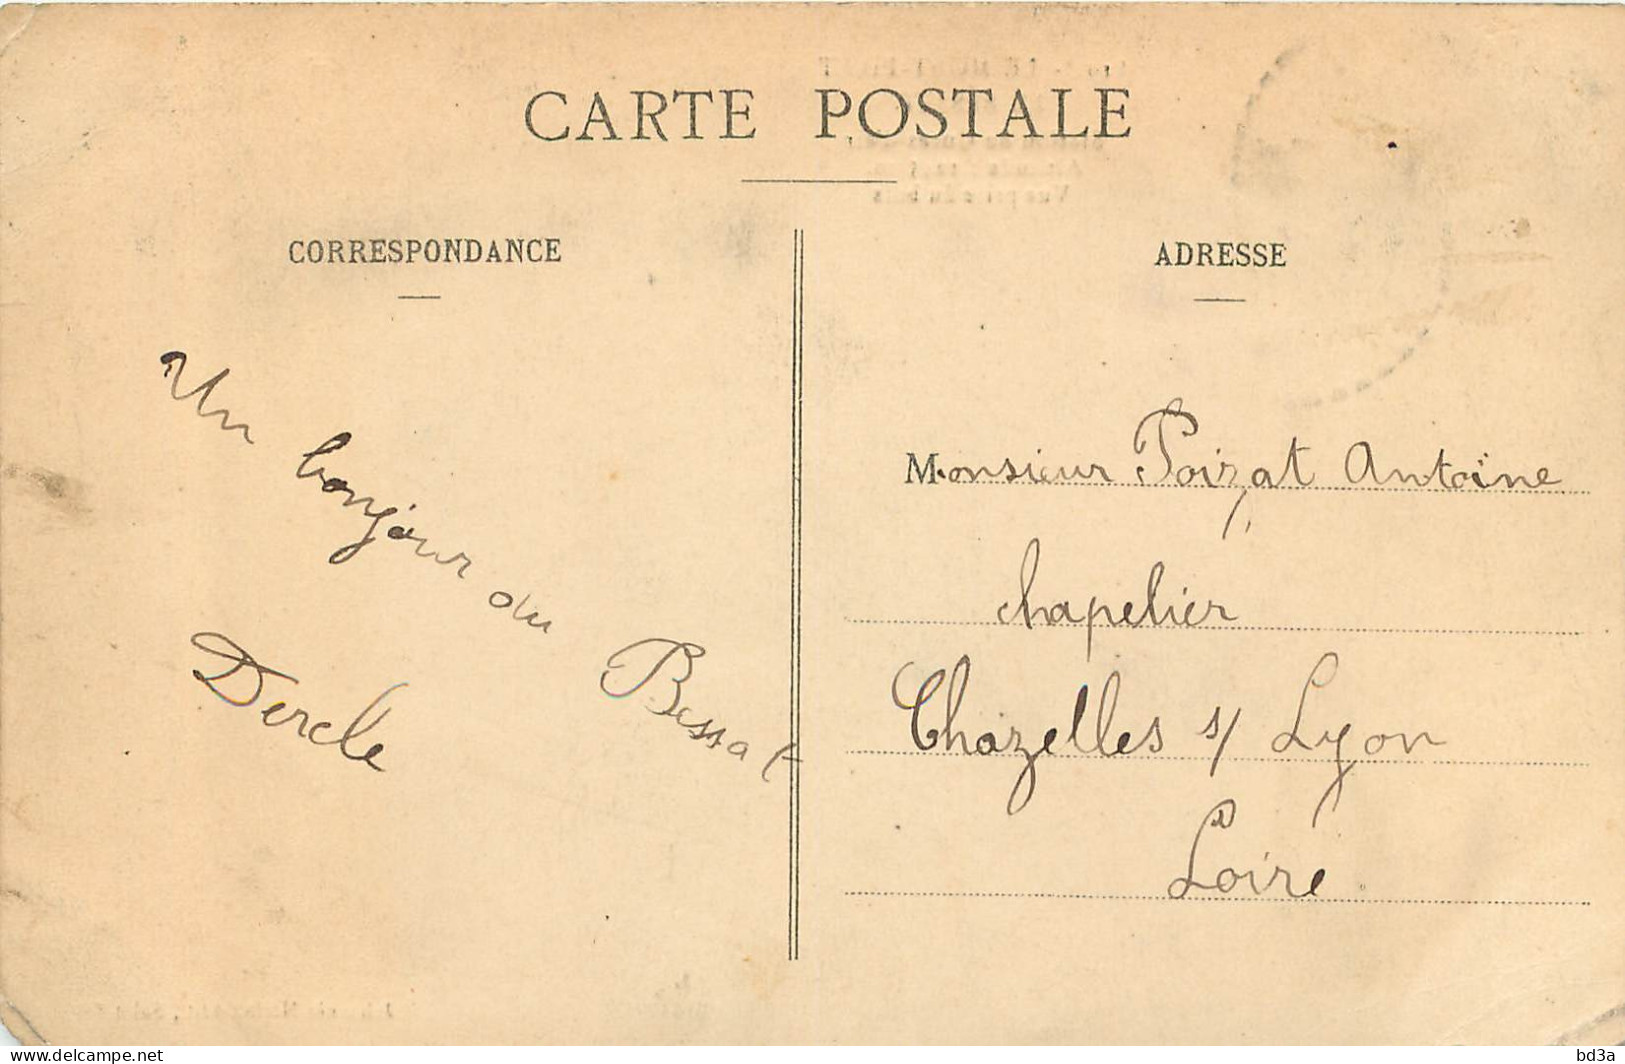 CARTE POSTALE
CORRESPONDANCE
Un bonjour du Bessat
Dercle
ADRESSE
Monsieur Poizat Antoïne
chapelier
Chazelles s/ Lyon
Loire
https://www.delcampe.net
bd3a